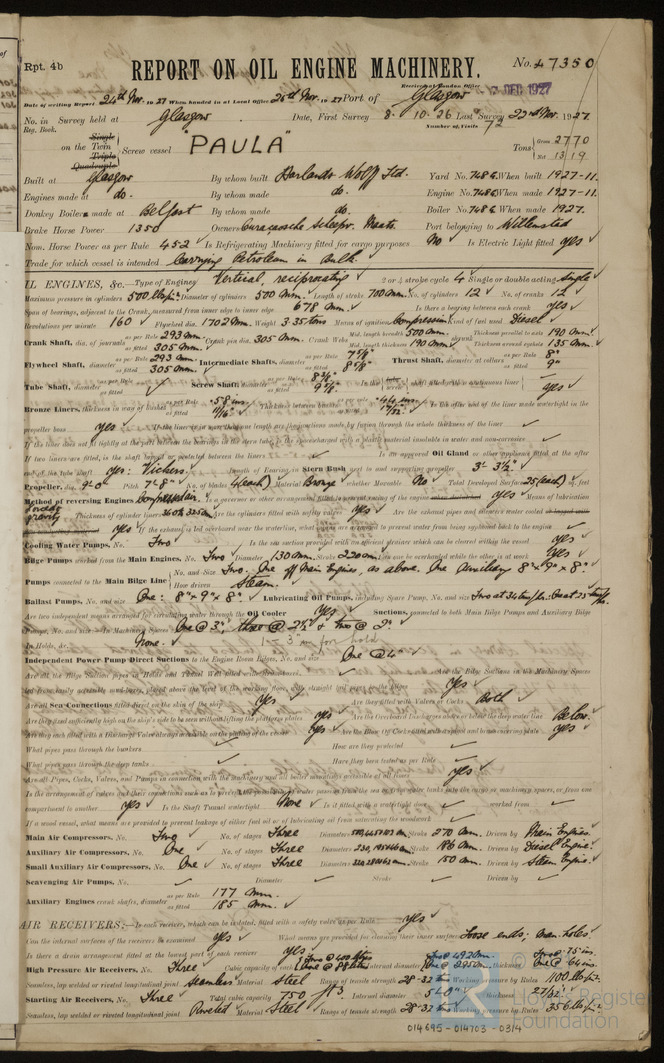 Rpt. 4b
REPORT ON OIL ENGINE MACHINERY.
No. 47350
Received at London Office DEC 1927
Date of writing Report 24th Nov. 1927 When handed in at Local Office 26th Nov. 1927 Port of Glasgow
No. in Survey held at Glasgow Date, First Survey 8-10-26 Last Survey 22nd Nov. 1927
Reg. Book. Number of Visits 72
on the Single Twin Triple Quadruple Screw vessel "PAULA" Tons Gross 2770 Net 1319
Built at Glasgow By whom built Harland & Wolff Ltd. Yard No. 748G When built 1927-11
Engines made at do. By whom made do. Engine No. 748G When made 1927-11.
Donkey Boilers made at Belfast By whom made do. Boiler No. 748G When made 1927.
Brake Horse Power 1350 Owners Curacaosche Scheepv. Maats. Port belonging to Willemstad
Nom. Horse Power as per Rule 452 Is Refrigerating Machinery fitted for cargo purposes No Is Electric Light fitted yes
Trade for which vessel is intended Carrying Petroleum in Bulk
OIL ENGINES, &c.—Type of Engines Vertical, reciprocating 2 or 4 stroke cycle 4 Single or double acting Single
Maximum pressure in cylinders 500 Diameter of cylinders 500 mm. Length of stroke 700 mm. No. of cylinders 12 No. of cranks 12
Span of bearings, adjacent to the Crank, measured from inner edge to inner edge 678 mm. Is there a bearing between each crank yes
Revolutions per minute 160 Flywheel dia. 1702 mm. Weight 3.35 tons Means of ignition Compression Kind of fuel used Diesel
Crank Shaft, dia. of journals as per Rule 293 mm as fitted 305 mm. Crank pin dia. 305 mm. Crank Webs Mid. length breadth 500 mm. Mid. length thickness 190 mm. Thickness parallel to axis 190 mm. Thickness around eyehole 135 mm.
Flywheel Shaft, diameter as per Rule 293 mm. as fitted 305 mm. Intermediate Shafts, diameter as per Rule 7 7/8" as fitted 8 5/8" Thrust Shaft, diameter at collars as per Rule 8" as fitted 9"
Tube Shaft, diameter as per Rule as fitted Screw Shaft, diameter as per Rule 8 3/4" as fitted 9 5/8" Is the shaft fitted with a continuous liner yes
Bronze Liners, thickness in way of bushes as per Rule .58 ins. as fitted 11/16" Thickness between bushes as per Rule .44 ins. as fitted 17/32" Is the after end of the liner made watertight in the
propeller boss yes If the liner is in more than one length are the junctions made by fusion through the whole thickness of the liner
If the liner does not fit tightly at the part between the bearings in the stern tube, is the space charged with a plastic material insoluble in water and non-corrosive
If two liners are fitted, is the shaft lapped or protected between the liners Is an approved Oil Gland or other appliance fitted at the after
end of the tube shaft yes: Vickers. Length of Bearing in Stern Bush next to and supporting propeller 3'-3½"
Propeller, dia. 9'-0" Pitch 7'-8" No. of blades 4 (each) Material Bronze whether Moveable No Total Developed Surface 25 (each) sq. feet
Method of reversing Engines Compressed air Is a governor or other arrangement fitted to prevent racing of the engine yes Means of lubrication
forced & gravity Thickness of cylinder liners Are the cylinders fitted with safety valves yes Are the exhaust pipes and silencers water cooled or lagged with
yes If the exhaust is led overboard near the waterline, what means are arranged to prevent water from being syphoned back to the engine
Cooling Water Pumps, No. Two Is the sea suction provided with an efficient strainer which can be cleared within the vessel yes
Bilge Pumps worked from the Main Engines, No. Two Diameter 130 mm. Stroke 220 mm. Can one be overhauled while the other is at work yes
Pumps connected to the Main Bilge Line No. and Size Two: One off Main Engines, as above. One Auxiliary 8"x9"x8". How driven Steam.
Ballast Pumps, No. and size One: 8"x9"x8" Lubricating Oil Pumps, including Spare Pump, No. and size
Are two independent means arranged for circulating water through the Oil Cooler yes Suctions, connected to both Main Bilge Pumps and Auxiliary Bilge
Pumps, No. and size:—In Machinery Spaces One @ 3", three @ 2½" & two @ 2"
In Holds, &c. None.
Independent Power Pump Direct Suctions to the Engine Room Bilges, No. and size One @ 4"
Are all the Bilge Suction pipes in Holds and Tunnel Well fitted with strum-boxes Are the Bilge Suctions in the Machinery Spaces
led from easily accessible mud boxes, placed above the level of the working floor, with straight tail pipes to the bilges yes
Are all Sea Connections fitted direct on the skin of the ship yes Are they fitted with Valves or Cocks Both
Are they fixed sufficiently high on the ship's side to be seen without lifting the platform plates yes Are the Overboard Discharges above or below the deep water line Below.
Are they each fitted with a Discharge Valve always accessible on the plating of the vessel yes Are the Blow Off Cocks fitted with a spigot and brass covering plate yes
What pipes pass through the bunkers How are they protected
What pipes pass through the deep tanks Have they been tested as per Rule
Are all Pipes, Cocks, Valves, and Pumps in connection with the machinery and all boiler mountings accessible at all times yes
Is the arrangement of valves and their connections such as to prevent the possibility of water passing from the sea or from water tanks into the cargo or machinery spaces, or from one
compartment to another yes Is the Shaft Tunnel watertight None Is it fitted with a watertight door worked from
If a wood vessel, what means are provided to prevent leakage of either fuel oil or lubricating oil from saturating the woodwork
Main Air Compressors, No. Two No. of stages Three Diameters Stroke 270 mm. Driven by Main Engines.
Auxiliary Air Compressors, No. One No. of stages Three Diameters Stroke 186 mm. Driven by Diesel Engine.
Small Auxiliary Air Compressors, No. One No. of stages Three Diameters Stroke 150 mm. Driven by Steam Engine.
Scavenging Air Pumps, No. Diameter Stroke Driven by
Auxiliary Engines crank shafts, diameter as per Rule 177 mm. as fitted 185 mm.
AIR RECEIVERS:—Is each receiver, which can be isolated, fitted with a safety valve as per Rule yes
Can the internal surfaces of the receivers be examined yes What means are provided for cleaning their inner surfaces Loose ends; man-holes
Is there a drain arrangement fitted at the lowest part of each receiver yes
High Pressure Air Receivers, No. Three Cubic capacity of each Internal diameter thickness
Seamless, lap welded or riveted longitudinal joint Seamless Material Steel Range of tensile strength 28-32 tons Working pressure by Rules 1100
Starting Air Receivers, No. Three Total cubic capacity 750 ft3. Internal diameter 5'-0" thickness 27/32"
Seamless, lap welded or riveted longitudinal joint Riveted Material Steel Range of tensile strength 28-32 tons Working pressure by Rules 356
© Lloyd's Register Foundation
014695-014703-0314